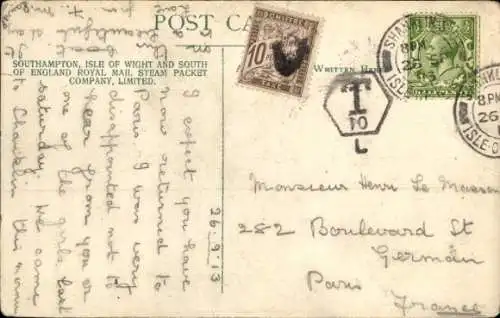 POST CA
SOUTHAMPTON, ISLE OF WIGHT AND SOUTH
OF ENGLAND ROYAL MAIL STEAM PACKET
COMPANY, LIMITED.
WRITTEN HERE
10
TAXE
T
10
L
SHANKLIN
8 PM
26
ISLE
8 PM
26
ISLE O
26.9.13
I expect you have
now returned to
Paris. I was very
disappointed not to
hear from you or
one of the girls last
saturday. We came
to Shanklin this morn
Monsieur Henri Le Masson
282 Boulevard St
Germain
Paris
France